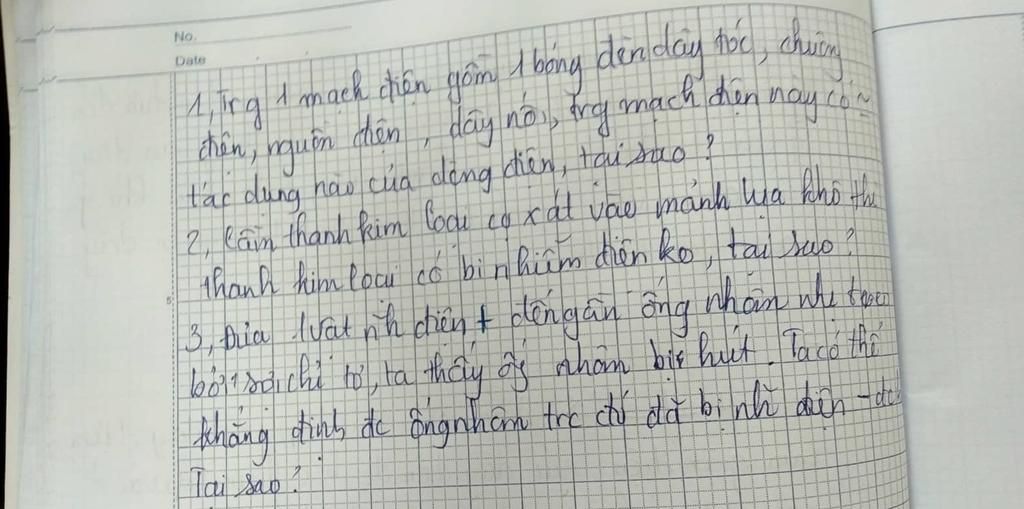 No.
Date
1, Trg 1 mạch điện gồm 1 bóng đèn dây tóc, chuông
điện, nguồn điện, dây nối, trg mạch điện này có ~
tác dụng nào của dòng điện, tại sao?
2, Cầm thanh kim loại cọ xát vào mảnh lụa khô thì
thanh kim loại có bị nhiễm điện ko, tại sao?
3, Đưa 1 vật nh điện + đến gần ống nhôm nhẹ treo
bởi 1 sợi chỉ tơ, ta thấy ống nhôm bị hút. Ta có thể
khẳng định đc ống nhôm trc đó đã bị nh điện - đc
Tại sao?